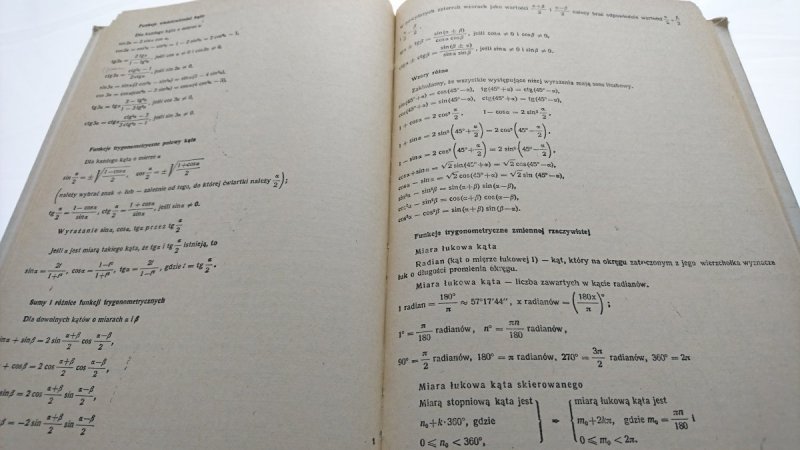 Funkcje wielokrotności kąta
Dla każdego kąta o mierze α
sin2α = 2 sinα cosα,
cos2α = cos²α − sin²α = 1 − 2 sin²α = 2 cos²α − 1,
tg2α = 2 tgα / (1 − tg²α), jeśli
ctg2α = (ctg²α − 1) / (2 ctgα), jeśli
sin3α =
cos3α =
tg3α =
ctg3α =
Funkcje trygonometryczne połowy kąta
Dla każdego kąta o mierze α
sin α/2 = ±√((1 − cosα)/2), cos α/2 = ±√((1 + cosα)/2)
(należy wybrać znak + lub − zależnie od tego, do której ćwiartki należy α/2);
tg α/2 = (1 − cosα)/sinα, ctg α/2 = (1 + cosα)/sinα, jeśli sinα ≠ 0.
Wyrażanie sinα, cosα, tgα przez tg α/2
Jeśli α jest miarą takiego kąta, że tgα i tg α/2 istnieją, to
sinα = 2t/(1+t²), cosα = (1−t²)/(1+t²), tgα = 2t/(1−t²), gdzie t = tg α/2.
Sumy i różnice funkcji trygonometrycznych
Dla dowolnych kątów o miarach α i β
sinα + sinβ = 2 sin (α+β)/2 cos (α−β)/2,
+ cosβ = 2 cos (α+β)/2 cos (α−β)/2,
sinβ = 2 cos (α+β)/2 sin (α−β)/2,
β = −2 sin (α+β)/2 sin (α−β)/2
1
czterech wzorach jako wartości (α+β)/2 i (α−β)/2 należy brać odpowiednio wartości
tgα ± tgβ = sin(α ± β)/(cosα cosβ), jeśli cosα ≠ 0 i cosβ ≠ 0,
jeśli sinα ≠ 0 i sinβ ≠ 0.
Wzory różne
Zakładamy, że wszystkie występujące niżej wyrażenia mają sens liczbowy.
sin(45°+α) = cos(45°−α), tg(45°+α) = ctg(45°−α),
cos(45°+α) = sin(45°−α), ctg(45°+α) = tg(45°−α),
1 + cosα = 2 cos² α/2, 1 − cosα = 2 sin² α/2,
1 + sinα = 2 sin²(45°+α/2) = 2 cos²(45°−α/2),
1 − sinα = 2 cos²(45°+α/2) = 2 sin²(45°−α/2),
cosα + sinα = √2 sin(45°+α) = √2 cos(45°−α),
cosα − sinα = √2 cos(45°+α) = √2 sin(45°−α),
sin²α − sin²β = sin(α+β) sin(α−β),
cos²α − sin²β = cos(α+β) cos(α−β),
cos²α − cos²β = sin(α+β) sin(β−α).
Funkcje trygonometryczne zmiennej rzeczywistej
Miara łukowa kąta
Radian (kąt o mierze łukowej 1) — kąt, który na okręgu zatoczonym z jego wierzchołka wyznacza
łuk o długości promienia okręgu.
Miara łukowa kąta — liczba zawartych w kącie radianów.
1 radian = 180°/π ≈ 57°17′44″, x radianów = (180x/π)°;
1° = π/180 radianów, n° = πn/180 radianów,
90° = π/2 radianów, 180° = π radianów, 270° = 3π/2 radianów, 360° = 2π
Miara łukowa kąta skierowanego
Miarą stopniową kąta jest } ⇔ { miarą łukową kąta jest
n₀+k·360°, gdzie m₀+2kπ, gdzie m₀ = πn/180 i
0 ⩽ n₀ < 360°, 0 ⩽ m₀ < 2π.